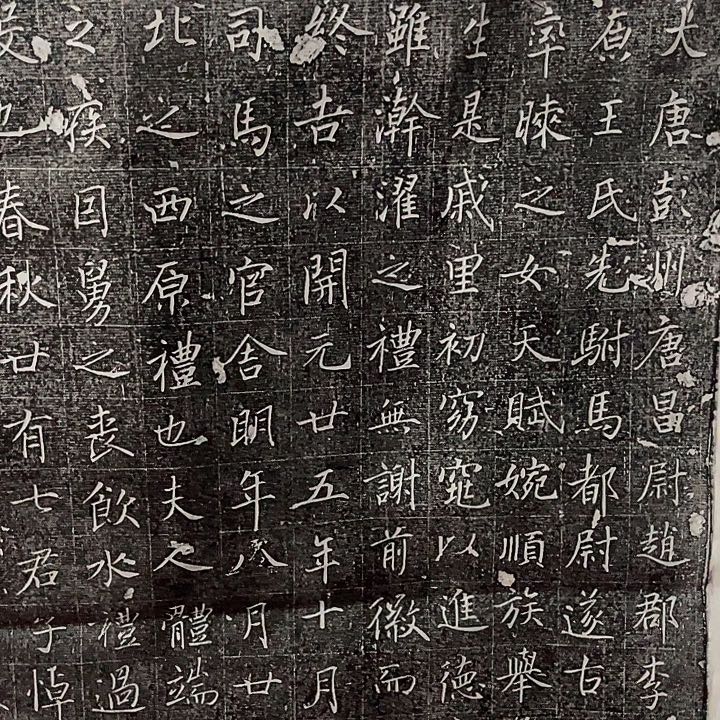 大唐彭州唐昌尉趙郡李
原王氏先駙馬都尉遂古
率睞之女天賦婉順族舉
生是戚里初窈窕以進德
雖澣濯之禮無謝前徽而
終吉以開元廿五年十月
司馬之官舍明年八月廿
北之西原禮也夫人體端
之疾因舅之喪飲水禮過
也春秋廿有七君子悼